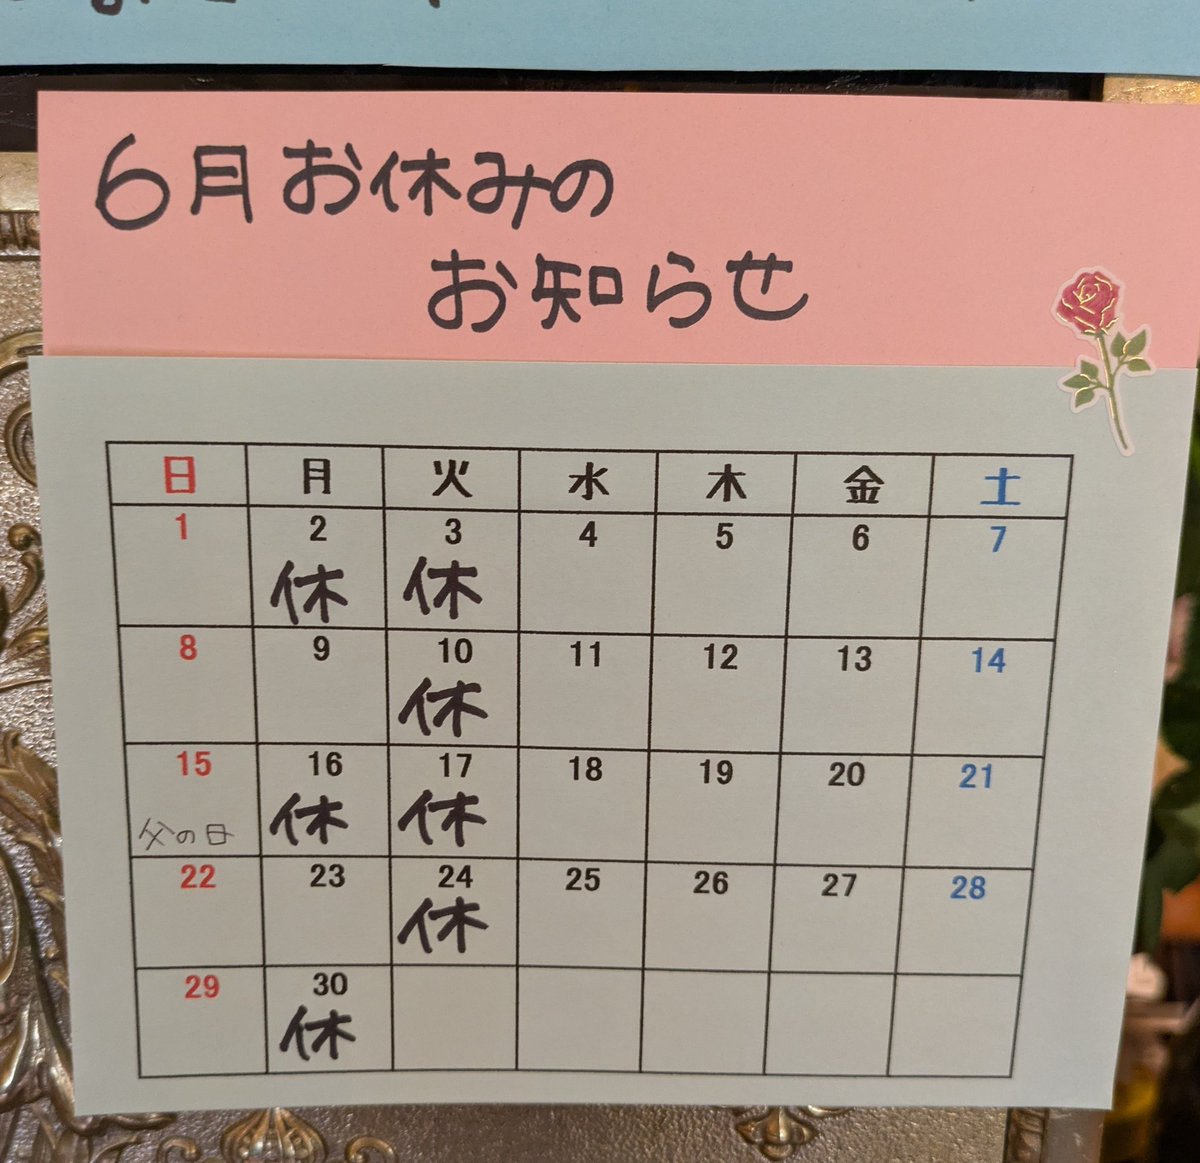 6月お休みの
お知らせ
日 月 火 水 木 金 土
1 2 3 4 5 6 7
休 休
8 9 10 11 12 13 14
休
15 16 17 18 19 20 21
父の日 休 休
22 23 24 25 26 27 28
休
29 30
休